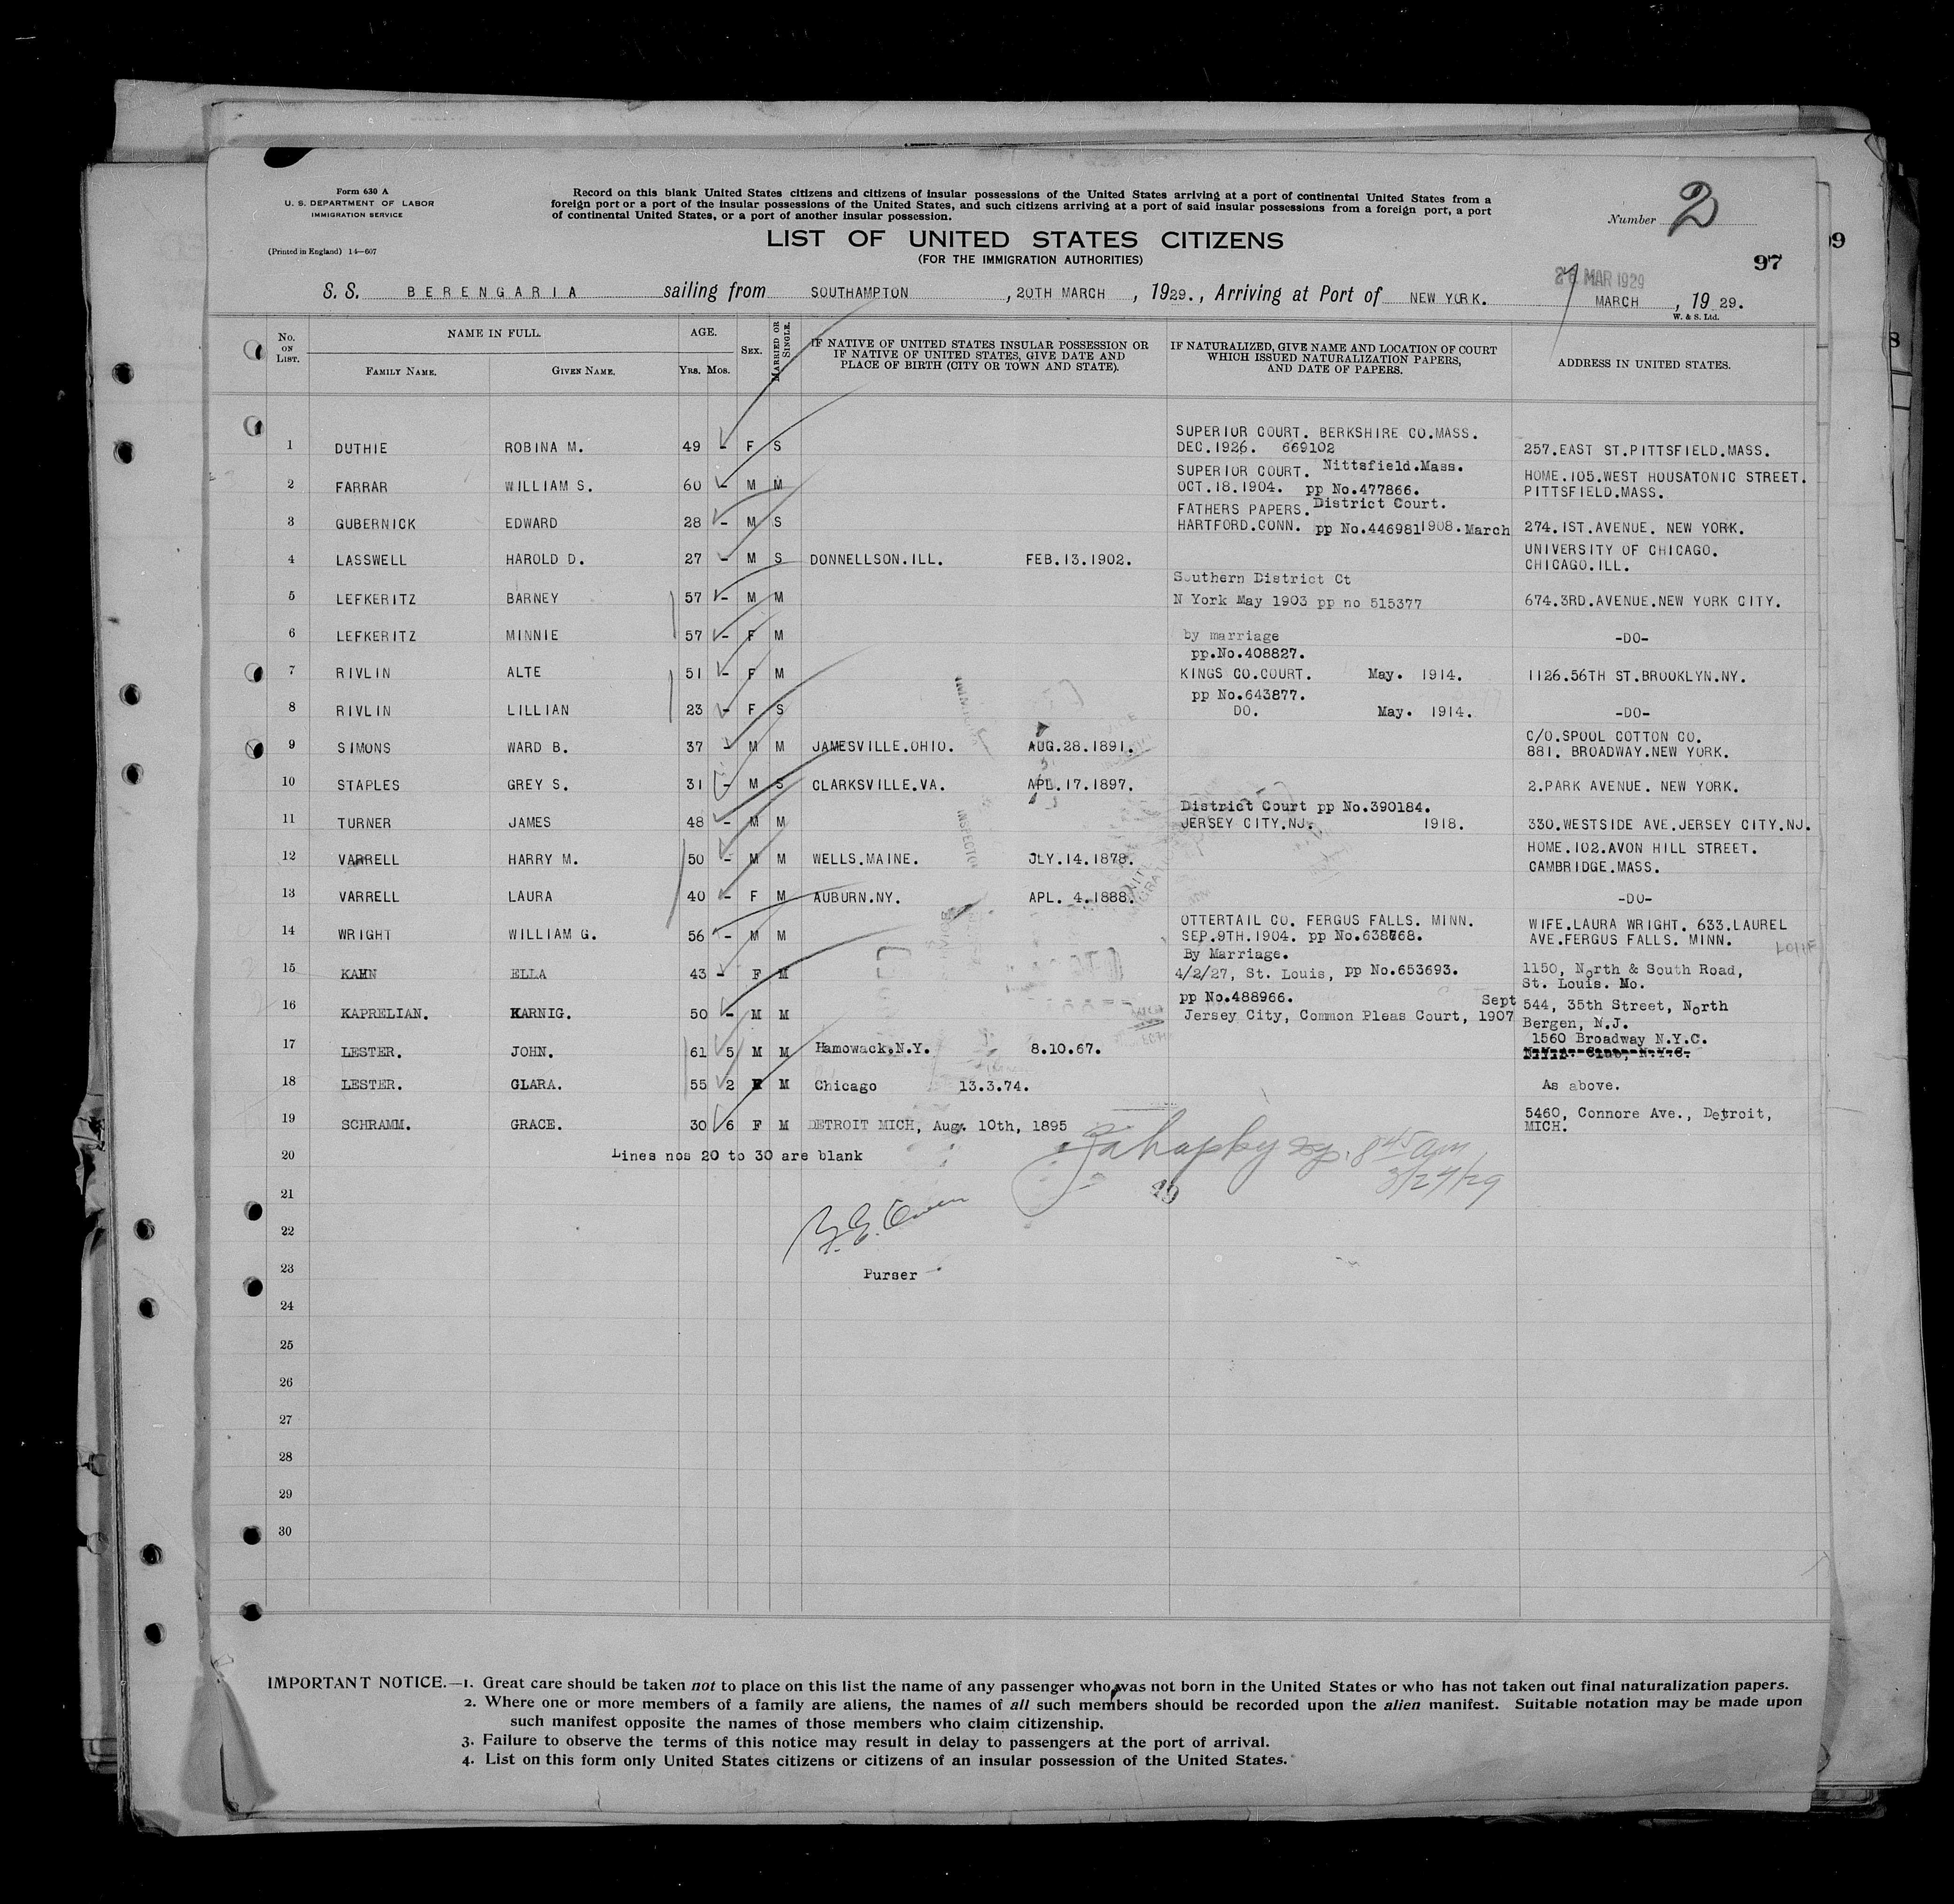 Form 630 A
U. S. DEPARTMENT OF LABOR
IMMIGRATION SERVICE
(Printed in England) 14—607
Record on this blank United States citizens and citizens of insular possessions of the United States arriving at a port of continental United States from a
foreign port or a port of the insular possessions of the United States, and such citizens arriving at a port of said insular possessions from a foreign port, a port
of continental United States, or a port of another insular possession.
Number 2
LIST OF UNITED STATES CITIZENS
(FOR THE IMMIGRATION AUTHORITIES)
99
97
MAR 1929
S. S. BERENGARIA sailing from SOUTHAMPTON, 20TH MARCH, 1929., Arriving at Port of NEW YORK. MARCH, 19 29.
W. & S. Ltd.
No. ON LIST. NAME IN FULL. FAMILY NAME. GIVEN NAME. AGE. YRS. MOS. SEX. MARRIED OR SINGLE. IF NATIVE OF UNITED STATES INSULAR POSSESSION OR IF NATIVE OF UNITED STATES, GIVE DATE AND PLACE OF BIRTH (CITY OR TOWN AND STATE). IF NATURALIZED, GIVE NAME AND LOCATION OF COURT WHICH ISSUED NATURALIZATION PAPERS, AND DATE OF PAPERS. ADDRESS IN UNITED STATES.
SUPERIOR COURT. BERKSHIRE CO.MASS.
1 DUTHIE ROBINA M. 49 - F S DEC.1926. 669102 257.EAST ST.PITTSFIELD.MASS.
SUPERIOR COURT. Nittsfield.Mass. HOME.105.WEST HOUSATONIC STREET.
2 FARRAR WILLIAM S. 60 - M M OCT.18.1904. pp No.477866. PITTSFIELD.MASS.
FATHERS PAPERS. District Court.
3 GUBERNICK EDWARD 28 - M S HARTFORD.CONN. pp No.446981 1908. March 274.1ST.AVENUE. NEW YORK.
UNIVERSITY OF CHICAGO.
4 LASSWELL HAROLD D. 27 - M S DONNELLSON.ILL. FEB.13.1902. CHICAGO.ILL.
Southern District Ct
5 LEFKERITZ BARNEY 57 - M M N York May 1903 pp no 515377 674.3RD.AVENUE.NEW YORK CITY.
6 LEFKERITZ MINNIE 57 - F M by marriage -DO-
pp.No.408827.
7 RIVLIN ALTE 51 - F M KINGS CO.COURT. May. 1914. 1126.56TH ST.BROOKLYN.NY.
pp No.643877.
8 RIVLIN LILLIAN 23 - F S DO. May. 1914. -DO-
C/O.SPOOL COTTON CO.
9 SIMONS WARD B. 37 - M M JAMESVILLE.OHIO. AUG.28.1891. 881. BROADWAY.NEW YORK.
10 STAPLES GREY S. 31 - M S CLARKSVILLE.VA. APL.17.1897. 2.PARK AVENUE. NEW YORK.
District Court pp No.390184.
11 TURNER JAMES 48 - M M JERSEY CITY.NJ. 1918. 330.WESTSIDE AVE.JERSEY CITY.NJ.
HOME.102.AVON HILL STREET.
12 VARRELL HARRY M. 50 - M M WELLS.MAINE. JLY.14.1878. CAMBRIDGE.MASS.
13 VARRELL LAURA 40 - F M AUBURN.NY. APL. 4.1888. -DO-
OTTERTAIL CO. FERGUS FALLS. MINN. WIFE.LAURA WRIGHT. 633.LAUREL
14 WRIGHT WILLIAM G. 56 - M M SEP.9TH.1904. pp No.638668. AVE.FERGUS FALLS. MINN.
By Marriage.
15 KAHN ELLA 43 - F M 4/2/27, St. Louis, pp No.653693. 1150, North & South Road,
St. Louis. Mo.
pp No.488966. Sept 544, 35th Street, North
16 KAPRELIAN. KARNIG. 50 - M M Jersey City, Common Pleas Court, 1907 Bergen, N.J.
1560 Broadway N.Y.C.
17 LESTER. JOHN. 61 5 M M Hamowack.N.Y. 8.10.67. N.Y.A. Club, N.Y.C.
18 LESTER. CLARA. 55 2 F M Chicago 13.3.74. As above.
5460, Connore Ave., Detroit,
19 SCHRAMM. GRACE. 30 6 F M DETROIT MICH, Aug. 10th, 1895 MICH.
20 Lines nos 20 to 30 are blank
8 45 am
3/27/29
19
21
22
23 Purser
24
25
26
27
28
29
30
IMPORTANT NOTICE.—1. Great care should be taken not to place on this list the name of any passenger who was not born in the United States or who has not taken out final naturalization papers.
2. Where one or more members of a family are aliens, the names of all such members should be recorded upon the alien manifest. Suitable notation may be made upon
such manifest opposite the names of those members who claim citizenship.
3. Failure to observe the terms of this notice may result in delay to passengers at the port of arrival.
4. List on this form only United States citizens or citizens of an insular possession of the United States.